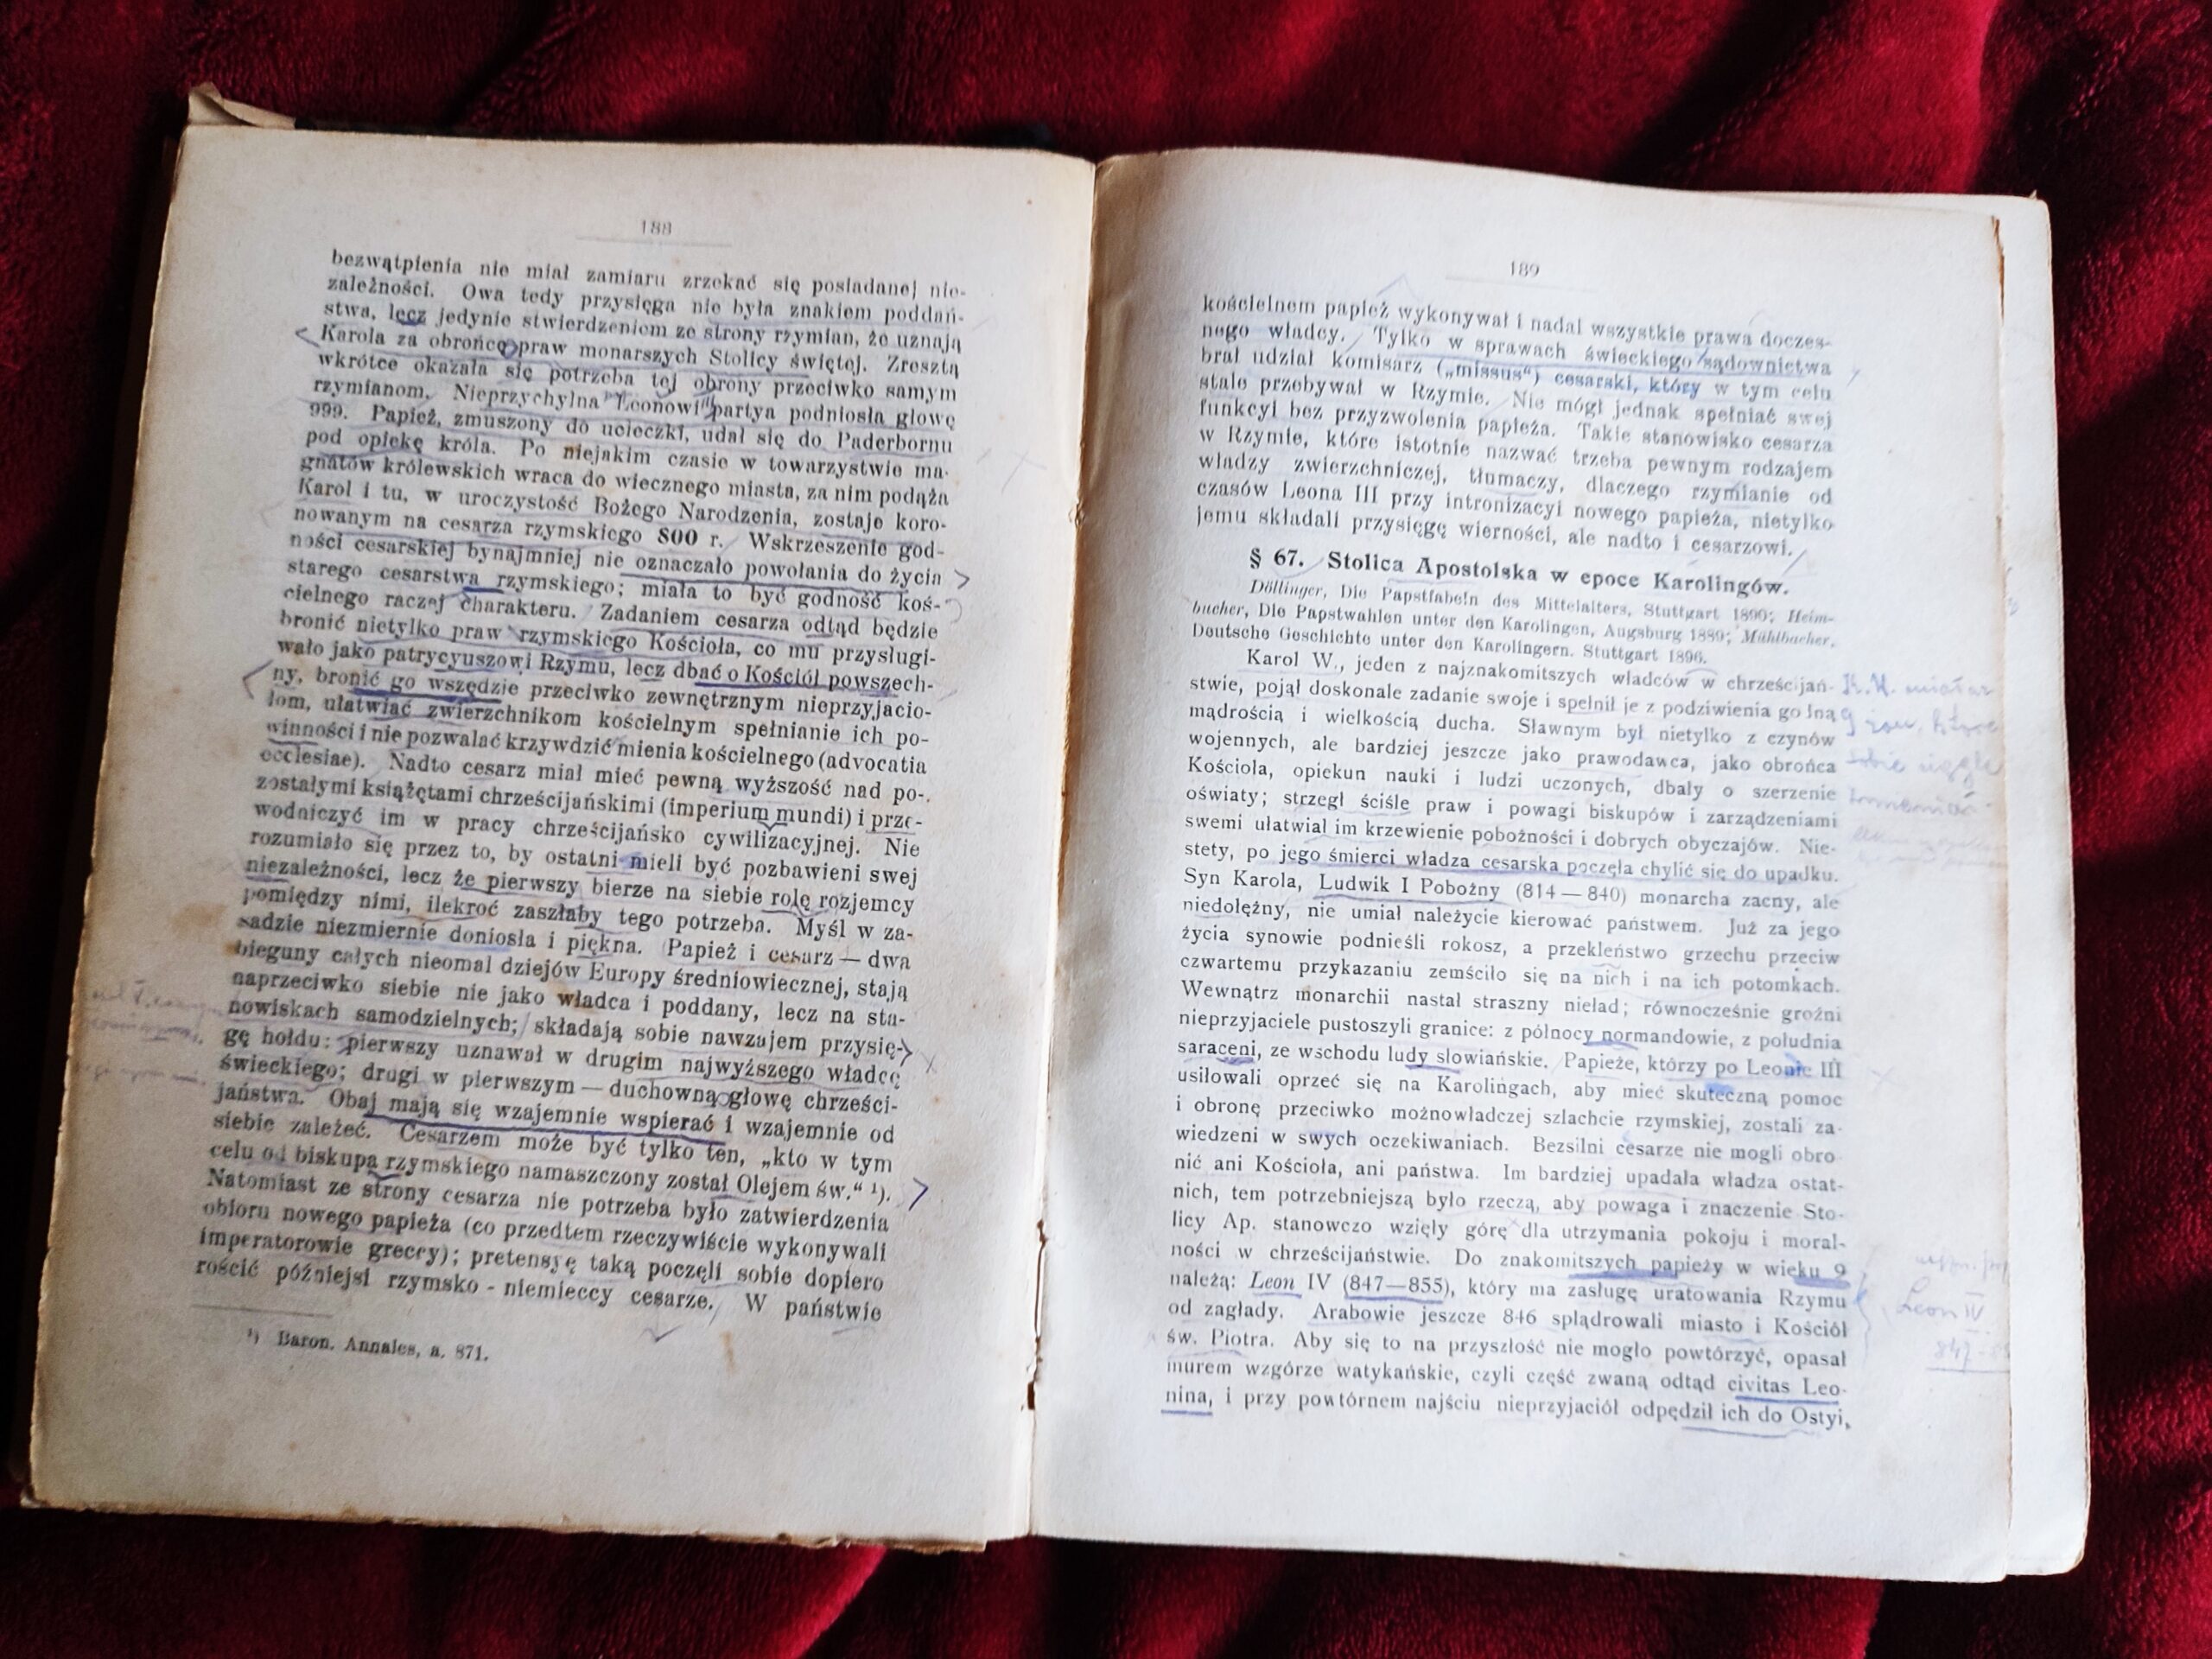 188
bezwątpienia nie miał zamiaru zrzekać się posiadanej nie-
zależności. Owa tedy przysięga nie była znakiem poddań-
stwa, lecz jedynie stwierdzeniem ze strony rzymian, że uznają
Karola za obrońcę praw monarszych Stolicy świętej. Zresztą
wkrótce okazała się potrzeba tej obrony przeciwko samym
rzymianom. Nieprzychylna Leonowi partya podniosła głowę
999. Papież, zmuszony do ucieczki, udał się do Paderbornu
pod opiekę króla. Po niejakim czasie w towarzystwie ma-
gnatów królewskich wraca do wiecznego miasta, za nim podąża
Karol i tu, w uroczystość Bożego Narodzenia, zostaje koro-
nowanym na cesarza rzymskiego 800 r. Wskrzeszenie god-
ności cesarskiej bynajmniej nie oznaczało powołania do życia
starego cesarstwa rzymskiego; miała to być godność koś-
cielnego raczej charakteru. Zadaniem cesarza odtąd będzie
bronić nietylko praw rzymskiego Kościoła, co mu przysługi-
wało jako patrycyuszowi Rzymu, lecz dbać o Kościół powszech-
ny, bronić go wszędzie przeciwko zewnętrznym nieprzyjacio-
łom, ułatwiać zwierzchnikom kościelnym spełnianie ich po-
winności i nie pozwalać krzywdzić mienia kościelnego (advocatia
ecclesiae). Nadto cesarz miał mieć pewną wyższość nad po-
zostałymi książętami chrześcijańskimi (imperium mundi) i prze-
wodniczyć im w pracy chrześcijańsko cywilizacyjnej. Nie
rozumiało się przez to, by ostatni mieli być pozbawieni swej
niezależności, lecz że pierwszy bierze na siebie rolę rozjemcy
pomiędzy nimi, ilekroć zaszłaby tego potrzeba. Myśl w za-
sadzie niezmiernie doniosła i piękna. Papież i cesarz — dwa
bieguny całych nieomal dziejów Europy średniowiecznej, stają
naprzeciwko siebie nie jako władca i poddany, lecz na sta-
nowiskach samodzielnych; składają sobie nawzajem przysię-
gę hołdu: pierwszy uznawał w drugim najwyższego władcę
świeckiego; drugi w pierwszym — duchowną głowę chrześci-
jaństwa. Obaj mają się wzajemnie wspierać i wzajemnie od
siebie zależeć. Cesarzem może być tylko ten, „kto w tym
celu od biskupa rzymskiego namaszczony został Olejem św.“ ¹).
Natomiast ze strony cesarza nie potrzeba było zatwierdzenia
obioru nowego papieża (co przedtem rzeczywiście wykonywali
imperatorowie greccy); pretensyę taką poczęli sobie dopiero
rościć późniejsi rzymsko - niemieccy cesarze. W państwie
¹) Baron. Annales, a. 871.
189
kościelnem papież wykonywał i nadal wszystkie prawa doczes-
nego władcy. Tylko w sprawach świeckiego sądownictwa
brał udział komisarz („missus“) cesarski, który w tym celu
stale przebywał w Rzymie. Nie mógł jednak spełniać swej
funkcyi bez przyzwolenia papieża. Takie stanowisko cesarza
w Rzymie, które istotnie nazwać trzeba pewnym rodzajem
władzy zwierzchniczej, tłumaczy, dlaczego rzymianie od
czasów Leona III przy intronizacyi nowego papieża, nietylko
jemu składali przysięgę wierności, ale nadto i cesarzowi.
§ 67. Stolica Apostolska w epoce Karolingów.
Döllinger, Die Papstfabeln des Mittelalters, Stuttgart 1890; Heim-
bucher, Die Papstwahlen unter den Karolingen, Augsburg 1889; Mühlbacher,
Deutsche Geschichte unter den Karolingern. Stuttgart 1896.
Karol W., jeden z najznakomitszych władców w chrześcijań-
stwie, pojął doskonale zadanie swoje i spełnił je z podziwienia godną
mądrością i wielkością ducha. Sławnym był nietylko z czynów
wojennych, ale bardziej jeszcze jako prawodawca, jako obrońca
Kościoła, opiekun nauki i ludzi uczonych, dbały o szerzenie
oświaty; strzegł ściśle praw i powagi biskupów i zarządzeniami
swemi ułatwiał im krzewienie pobożności i dobrych obyczajów. Nie-
stety, po jego śmierci władza cesarska poczęła chylić się do upadku.
Syn Karola, Ludwik I Pobożny (814 — 840) monarcha zacny, ale
niedołężny, nie umiał należycie kierować państwem. Już za jego
życia synowie podnieśli rokosz, a przekleństwo grzechu przeciw
czwartemu przykazaniu zemściło się na nich i na ich potomkach.
Wewnątrz monarchii nastał straszny nieład; równocześnie groźni
nieprzyjaciele pustoszyli granice: z północy normandowie, z południa
saraceni, ze wschodu ludy słowiańskie. Papieże, którzy po Leonie III
usiłowali oprzeć się na Karolingach, aby mieć skuteczną pomoc
i obronę przeciwko możnowładczej szlachcie rzymskiej, zostali za-
wiedzeni w swych oczekiwaniach. Bezsilni cesarze nie mogli obro
nić ani Kościoła, ani państwa. Im bardziej upadała władza ostat-
nich, tem potrzebniejszą było rzeczą, aby powaga i znaczenie Sto-
licy Ap. stanowczo wzięły górę dla utrzymania pokoju i moral-
ności w chrześcijaństwie. Do znakomitszych papieży w wieku 9
należą: Leon IV (847—855), który ma zasługę uratowania Rzymu
od zagłady. Arabowie jeszcze 846 splądrowali miasto i Kościół
św. Piotra. Aby się to na przyszłość nie mogło powtórzyć, opasał
murem wzgórze watykańskie, czyli część zwaną odtąd civitas Leo-
nina, i przy powtórnem najściu nieprzyjaciół odpędził ich do Ostyi,
Leon IV